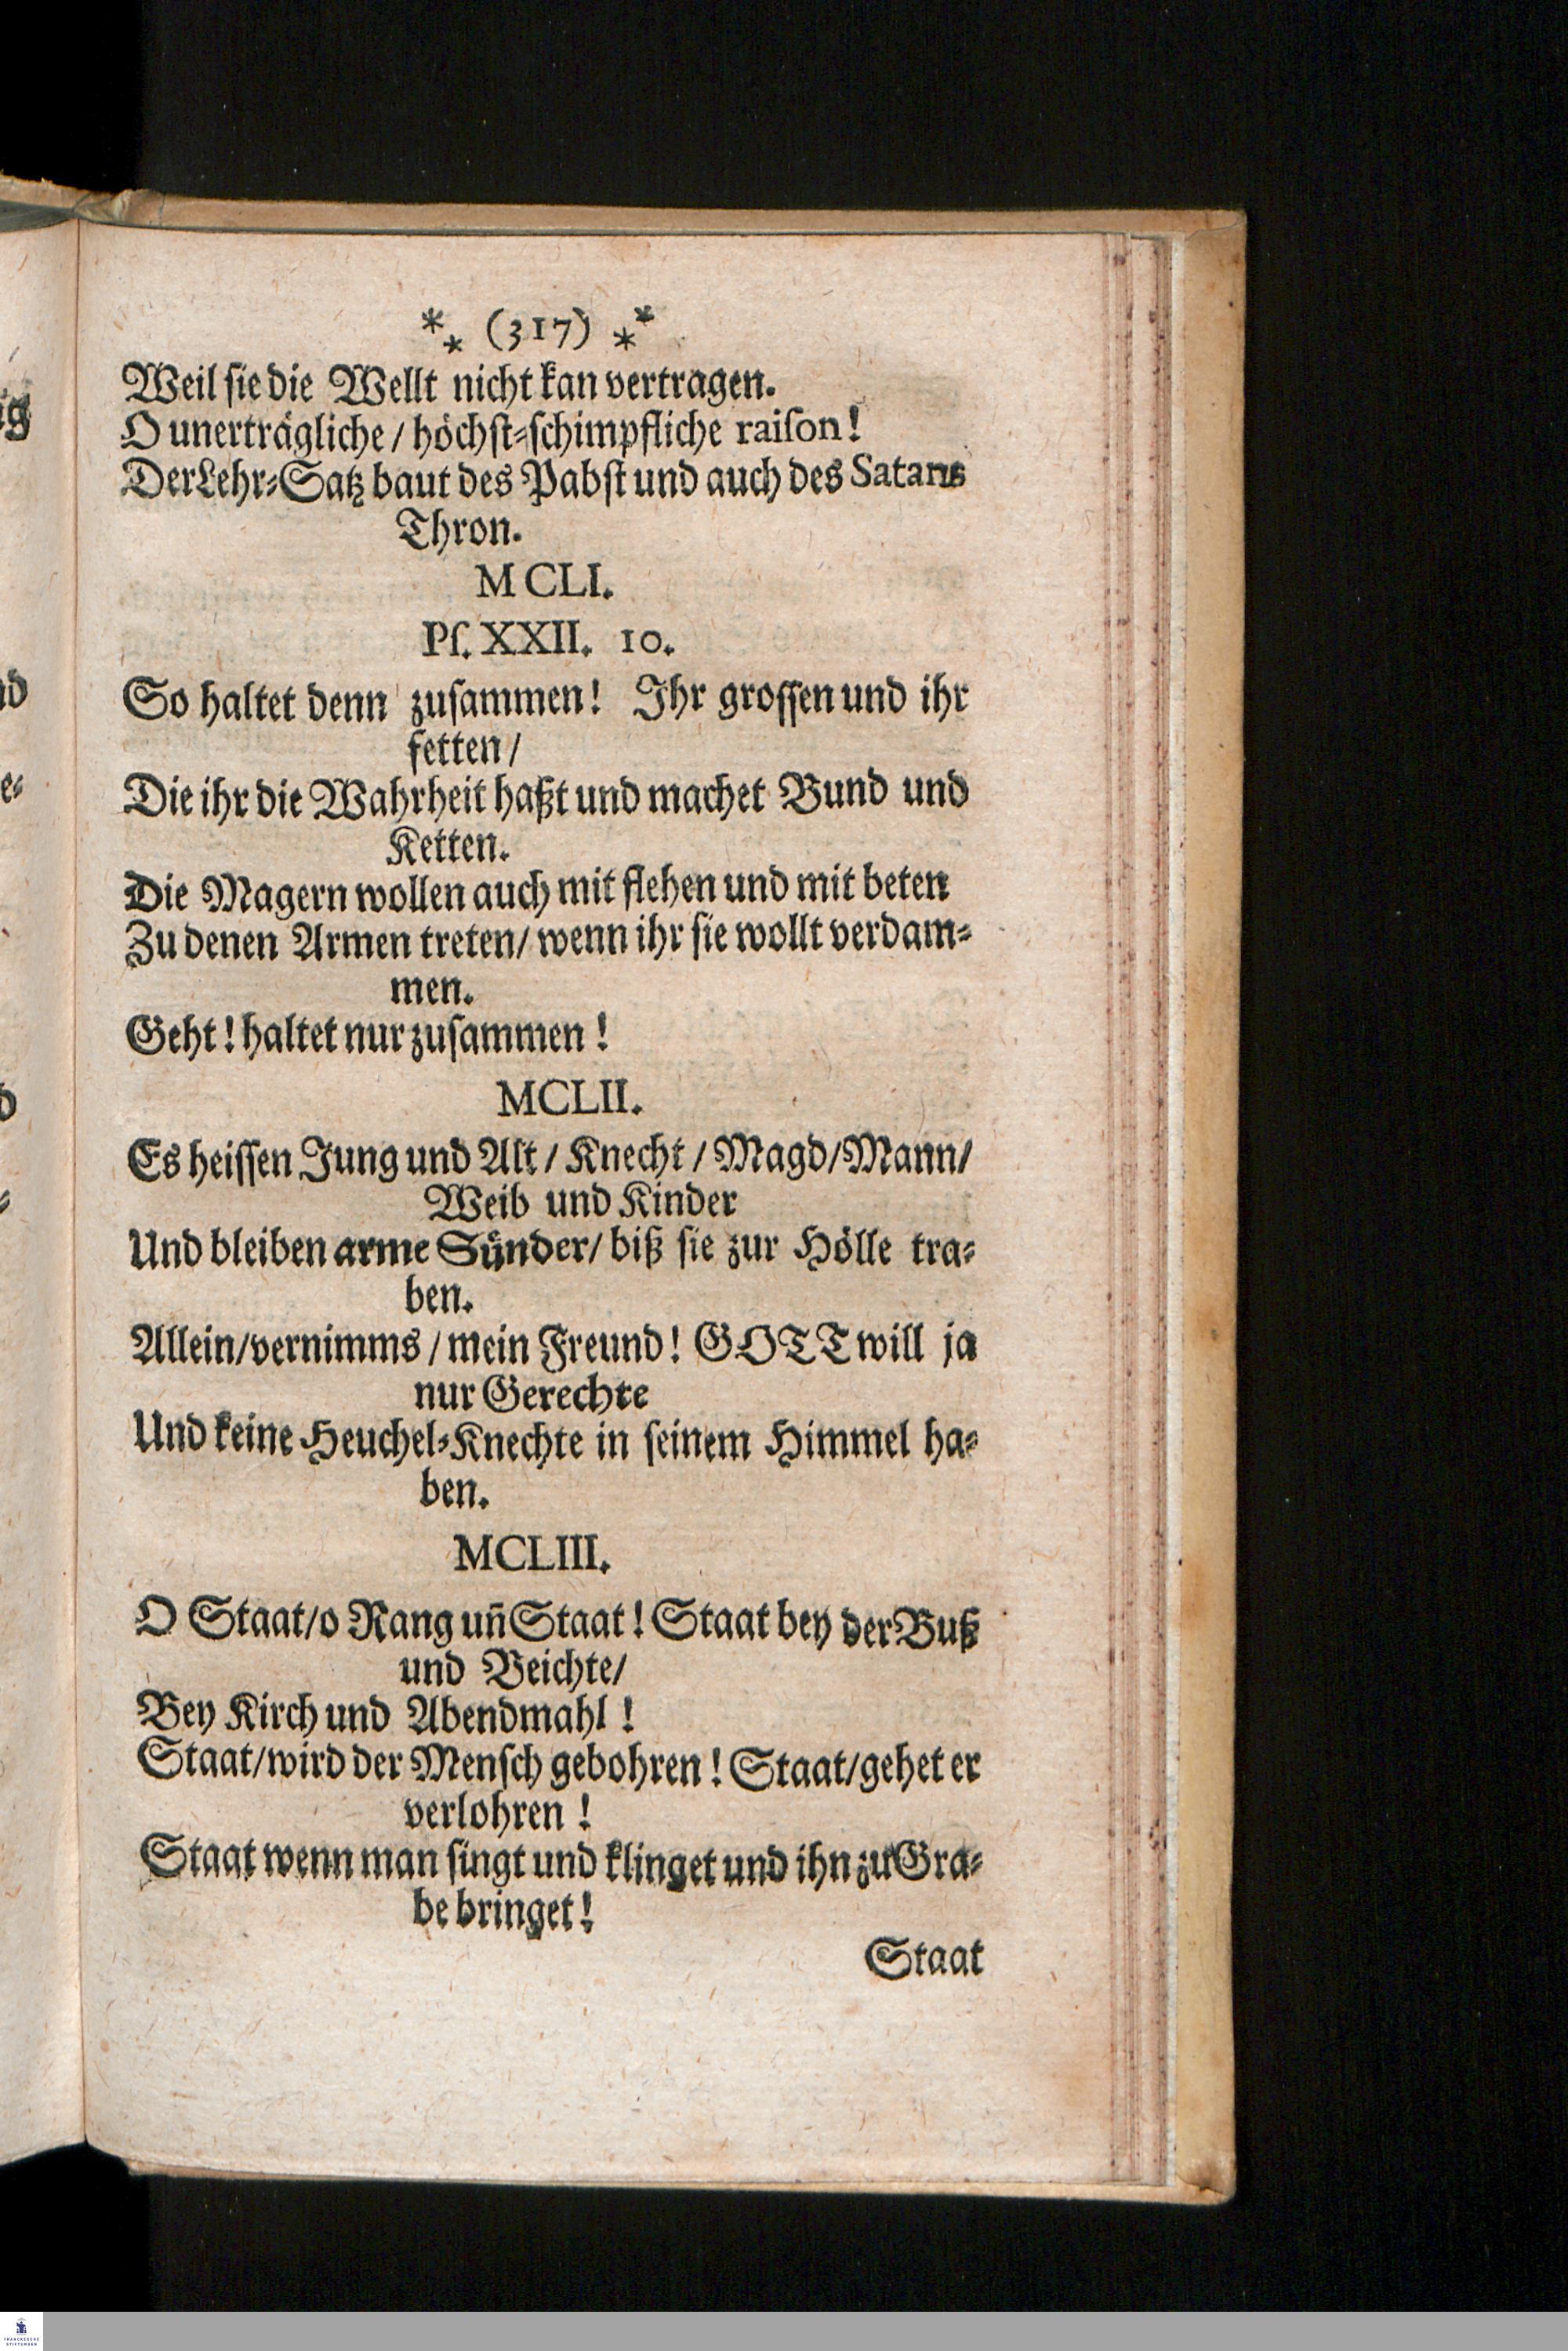 ** (317) **
Weil sie die Wellt nicht kan vertragen.
O unerträgliche / höchst-schimpfliche raiſon!
Der Lehr-Satz baut des Pabst und auch des Satans
Thron.
MCLI.
Pſ. XXII. 10.
So haltet denn zusammen! Ihr grossen und ihr
fetten /
Die ihr die Wahrheit haßt und machet Bund und
Ketten.
Die Magern wollen auch mit flehen und mit beten
Zu denen Armen treten / wenn ihr sie wollt verdam-
men.
Geht! haltet nur zusammen!
MCLII.
Es heissen Jung und Alt / Knecht / Magd / Mann /
Weib und Kinder
Und bleiben arme Sünder / biß sie zur Hölle tra-
ben.
Allein / vernimms / mein Freund! GOTT will ja
nur Gerechte
Und keine Heuchel-Knechte in seinem Himmel ha-
ben.
MCLIII.
O Staat / o Rang uñ Staat! Staat bey der Buß
und Beichte /
Bey Kirch und Abendmahl!
Staat / wird der Mensch gebohren! Staat / gehet er
verlohren!
Staat wenn man singt und klinget und ihn zu Gra-
be bringet!
Staat
FRANCKESCHE
STIFTUNGEN